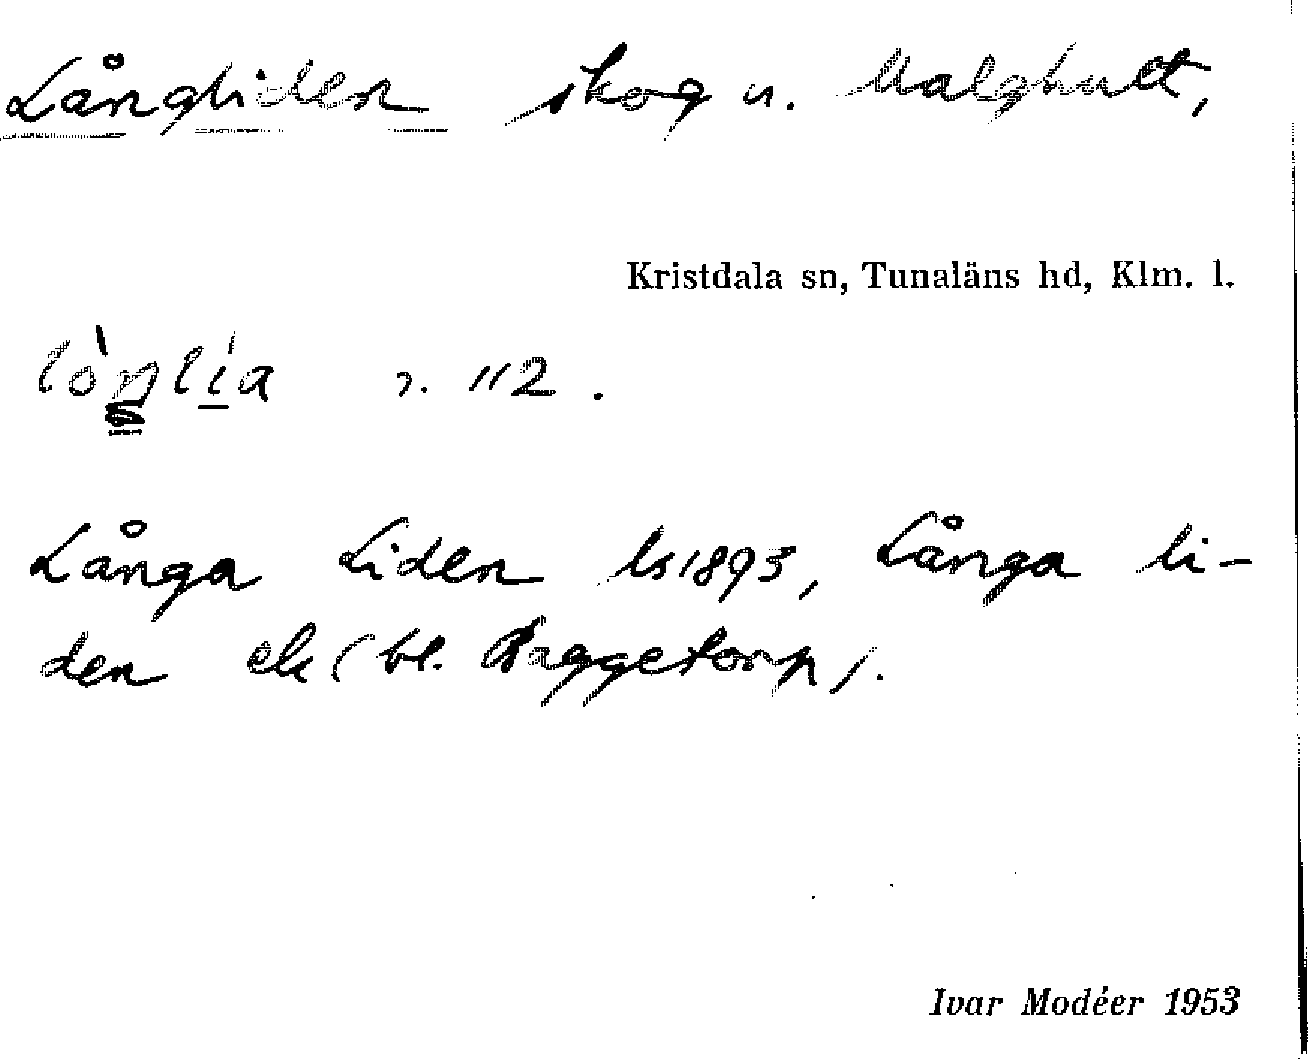 Långliden skog u. Malghult,
Kristdala sn, Tunaläns hd, Klm. l.
lòŋlía n. 112.
Långa Liden ls 1893, Långa li-
den ek (bl. Baggetorp).
Ivar Modéer 1953